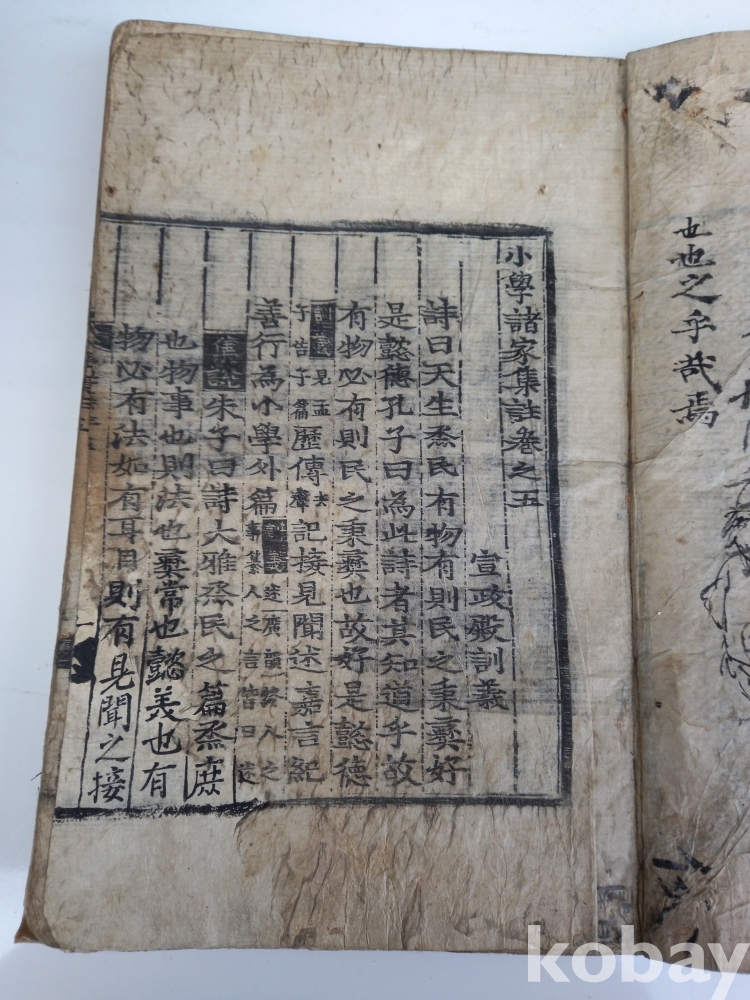 也也之乎哉焉
小學諸家集註卷之五
宣政殿訓義
詩曰天生烝民有物有則民之秉彝好
是懿德孔子曰為此詩者其知道乎故
有物必有則民之秉彝也故好是懿德
訓義見孟子告子篇歷傳去聲記接見聞述嘉言紀
善行為小學外篇
集說朱子曰詩大雅烝民之篇烝庶
也物事也則法也彝常也懿美也有
物必有法如有耳目則有見聞之接
kobay